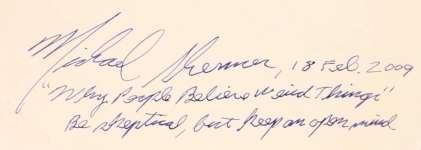 Michael Shermer, 18 Feb. 2009
"Why People Believe Weird Things"
Be skeptical, but keep an open mind